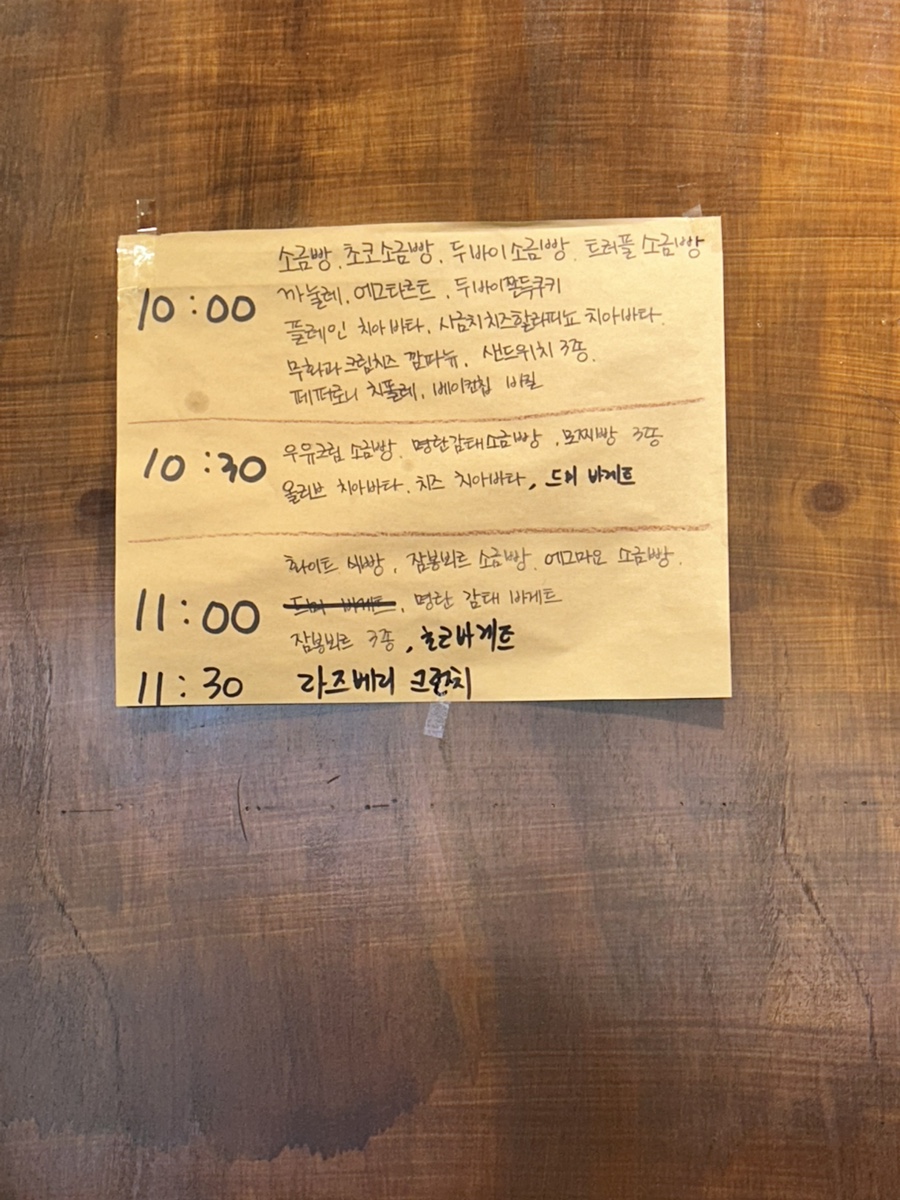 10:00
소금빵, 초코소금빵, 두바이소금빵, 트러플 소금빵
까눌레, 에그타르트, 두바이쫀득쿠키
플레인 치아바타, 시금치치즈할라피뇨 치아바타.
무화과크림치즈 깜파뉴, 샌드위치 3종.
페퍼로니 치폴레, 베이컨칩 바질
10:30
우유크림 소금빵, 명란감태소금빵, 모찌빵 3종
올리브 치아바타, 치즈 치아바타, 드미 바게트
11:00
화이트 식빵, 잠봉뵈르 소금빵, 에그마요 소금빵.
드미 바게트, 명란 감태 바게트
잠봉뵈르 3종, 초코바게트
11:30
라즈베리 크런치